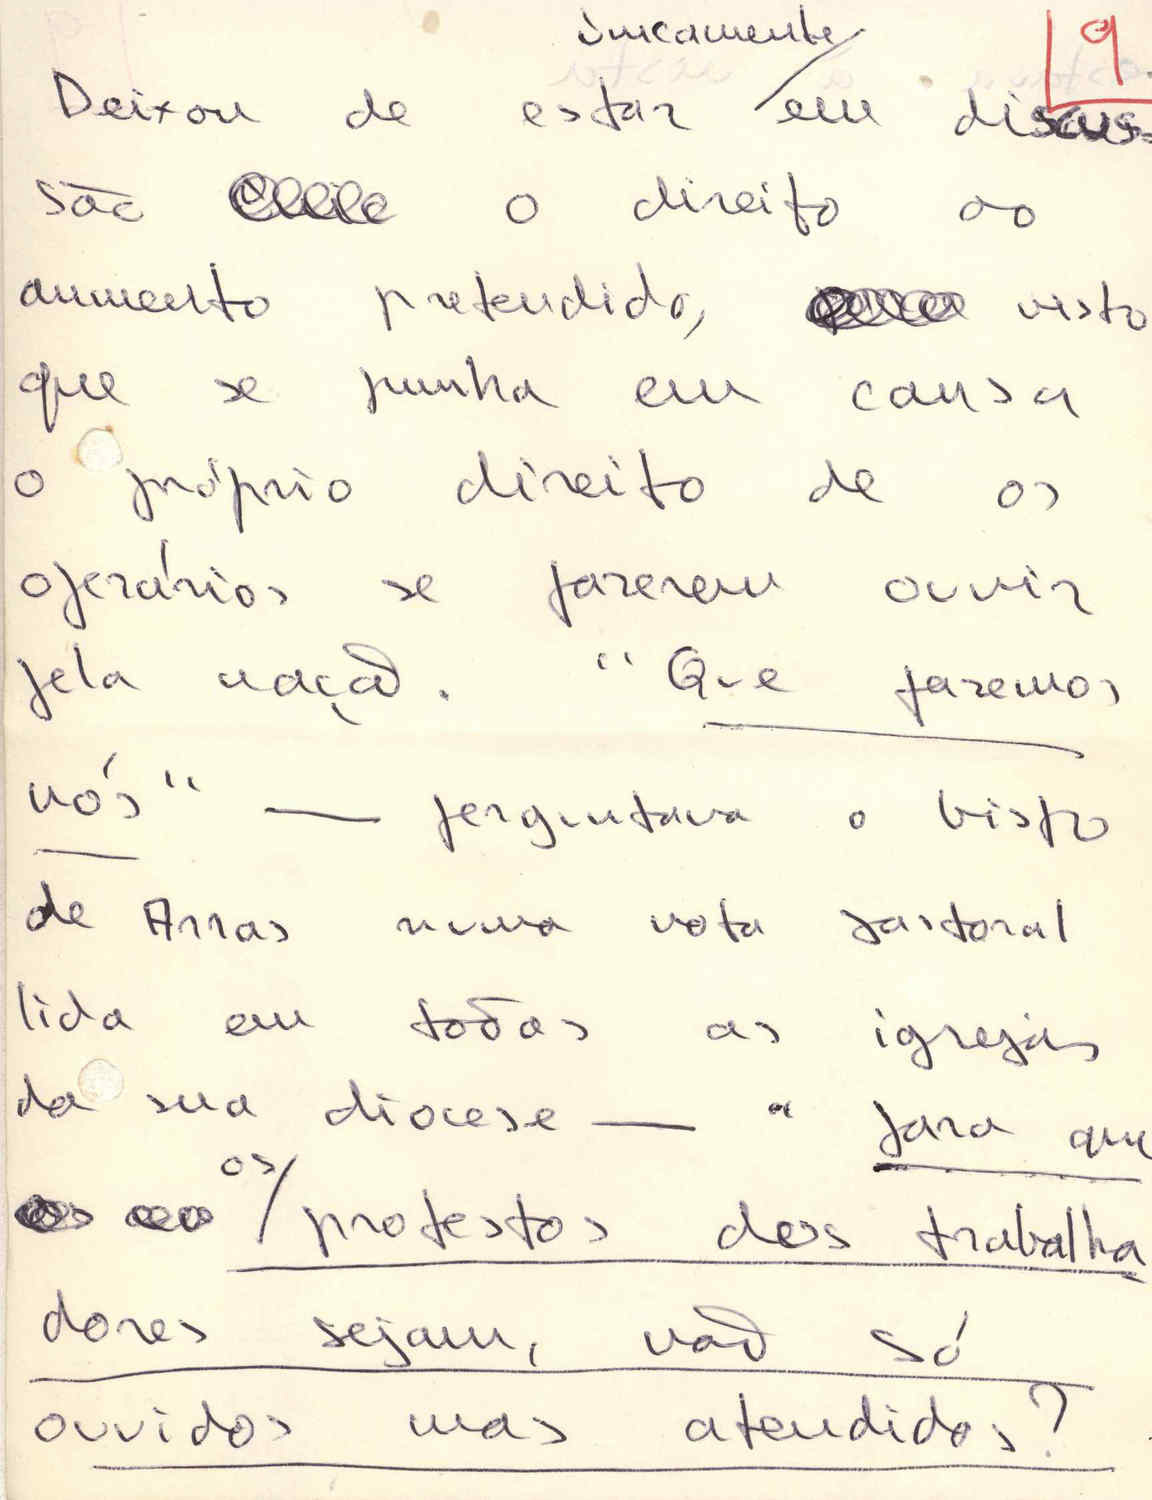 únicamente
9
Deixou de estar em discus-
são o direito ao
aumento pretendido, visto
que se punha em causa
o próprio direito de os
operários se fazerem ouvir
pela nação. "Que faremos
nós" — perguntava o bispo
de Arras numa nota pastoral
lida em todas as igrejas
da sua diocese — "para que
os
protestos dos trabalha
dores sejam, não só
ouvidos mas atendidos?